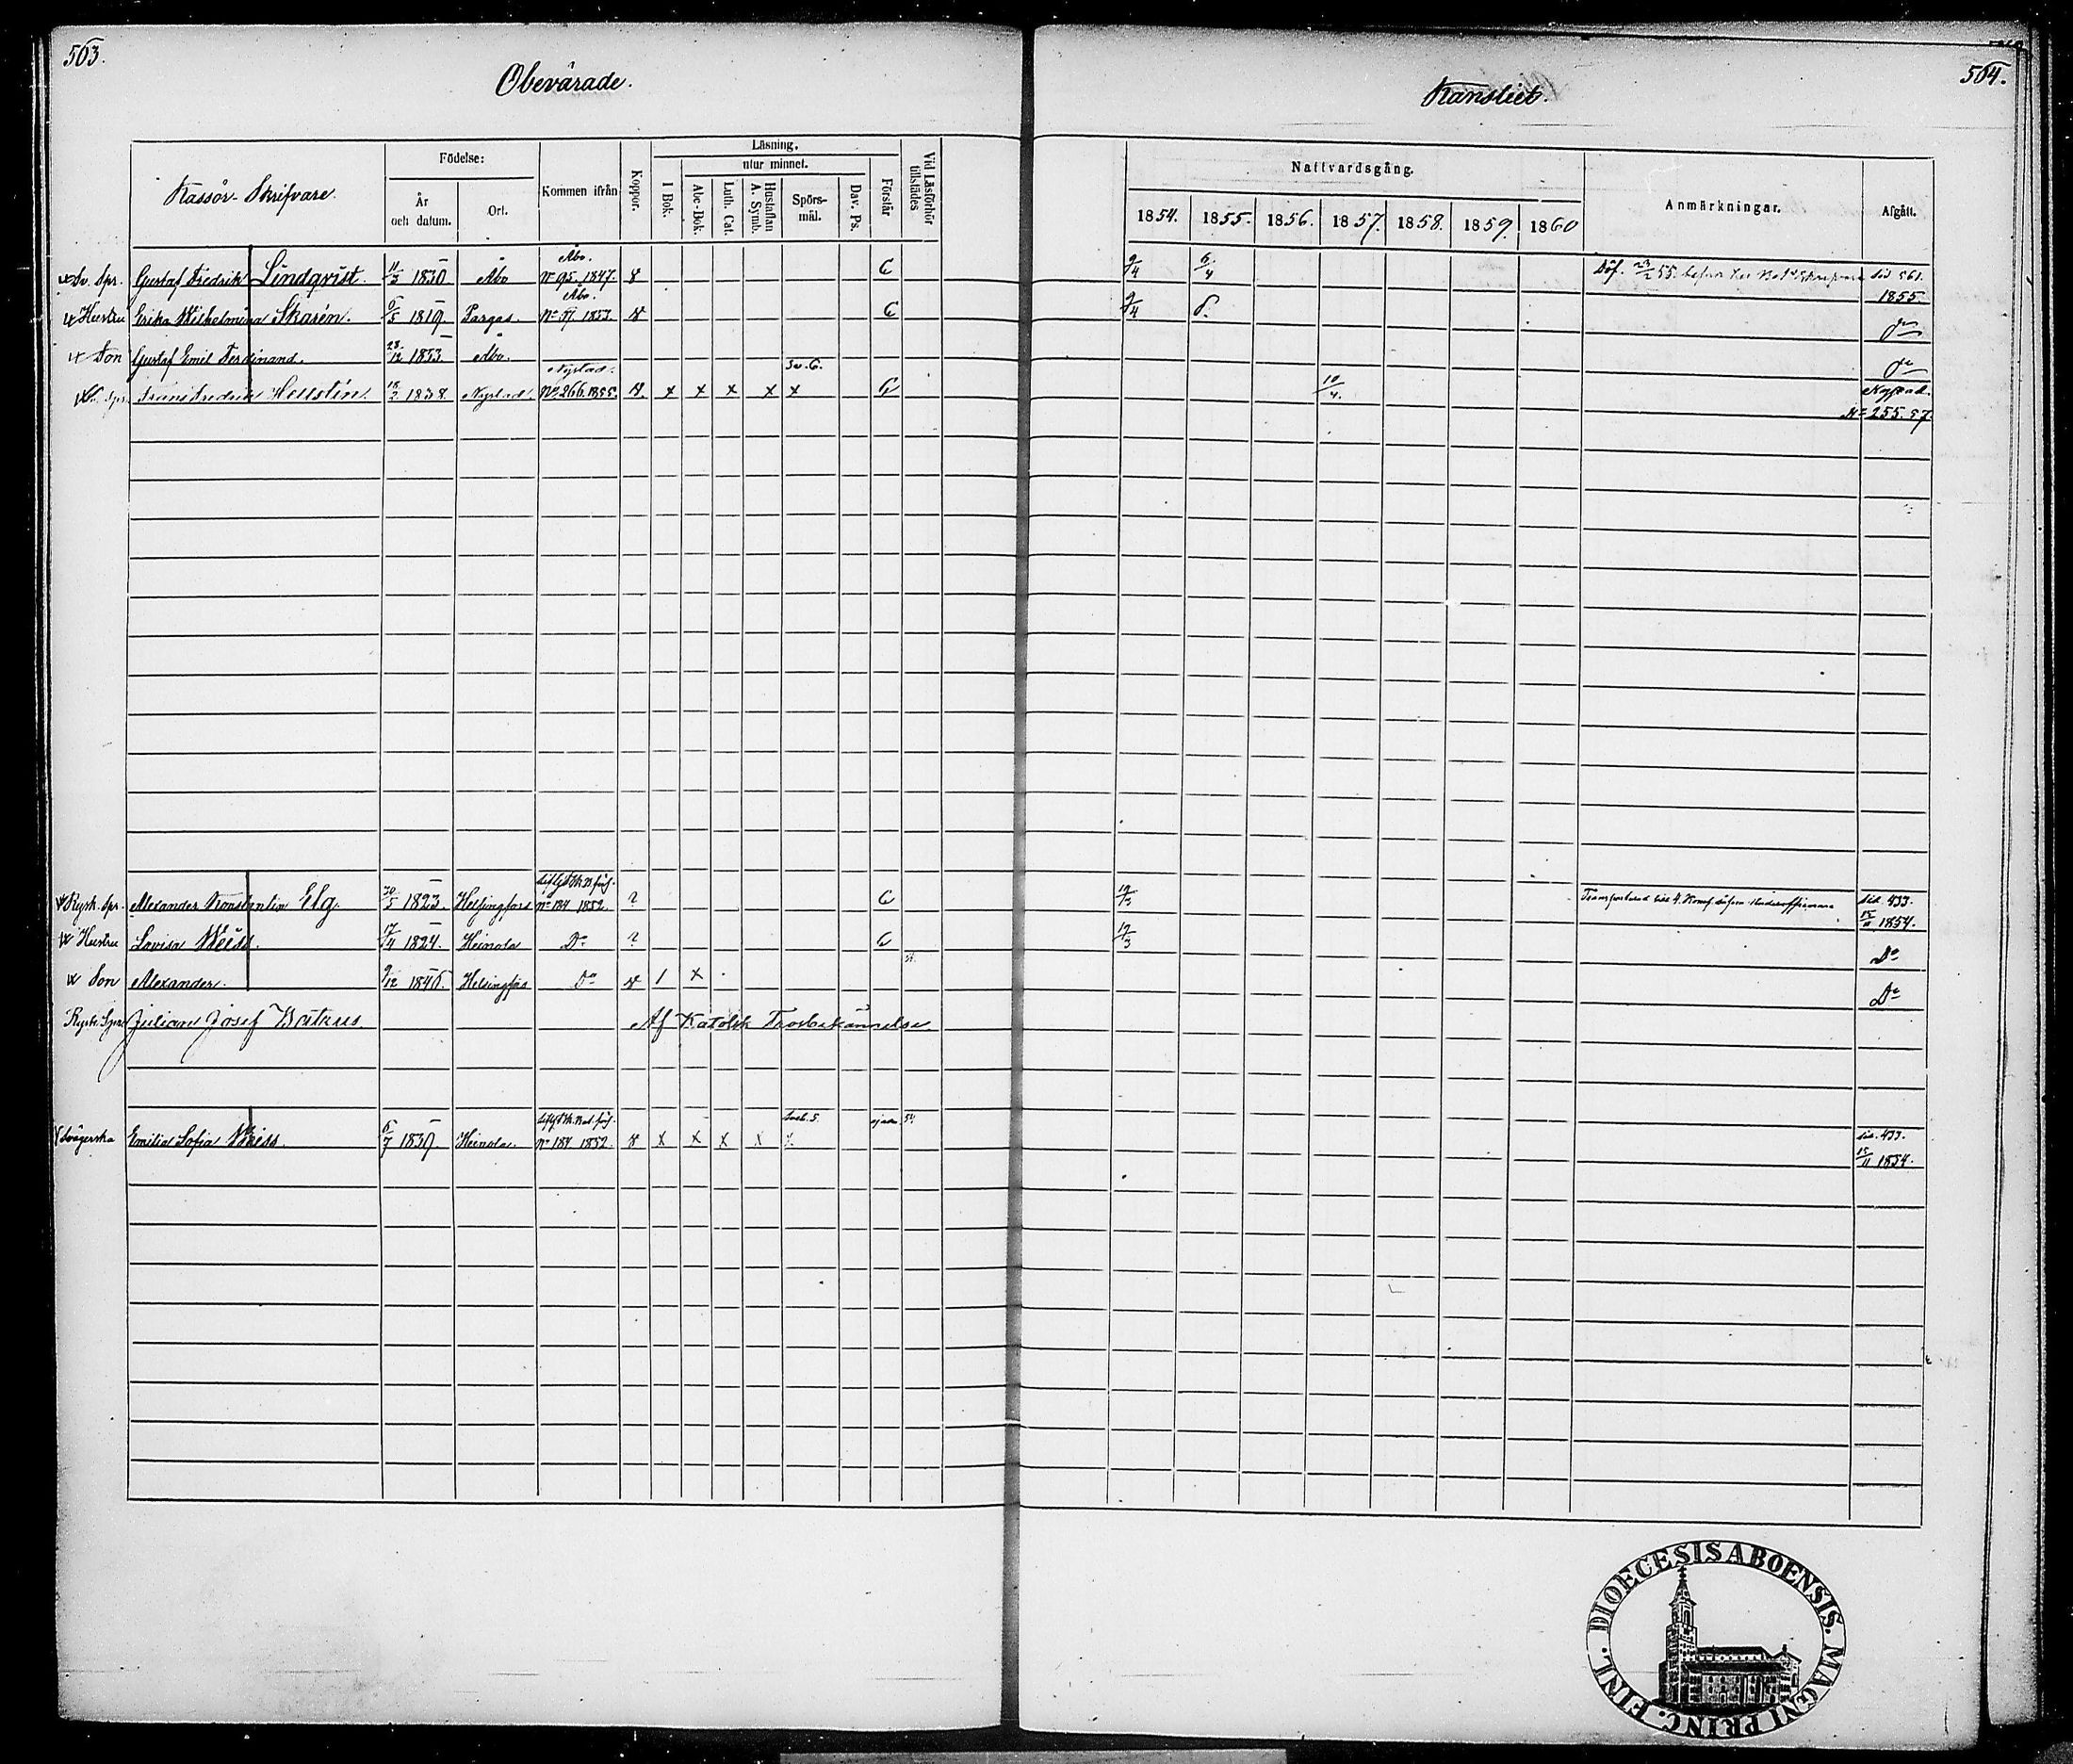 503.
Obevärade.
Kansliet.
504.
Kassör-Skrifvare.
Födelse:
År och datum.
Ort.
Kommen ifrån
Koppor.
Läsning.
I Bok.
utur minnet.
Abc-Bok.
Luth. Cat.
Hustaflan A. Symb.
Spörs-mål.
Dav. Ps.
Förstår
Vid Läsförhör tillstädes
Nattvardsgång.
1854. 1855. 1856. 1857. 1858. 1859. 1860
Anmärkningar.
Afgått.
Sv. Spr. Gustaf Fredrik Lindqvist. 11/3 1830 Åbo Åbo. No 95. 1847. C 9/4 6/4 sid 561. 1855.
Hustru Erika Wilhelmina Skarén. 6/5 1819 Pargas. Åbo. No 37. 1853. C 9/4 do
Son Gustaf Emil Ferdinand. 28/12 1853 Åbo. do
Frans Fredrik Hellstén. 18/2 1838. Nystad. Nystad. No 266. 1855. x x x x x Sv. 6. 10/4. Nystad. No 255. 57
Rysk. Spr. Alexander Konstantin Elg. 30/5 1823. Helsingfors No 184 1852. ? C 19/3 Sid. 433. 15/11 1854.
Hustru Lovisa Weiss. 17/4 1824. Heinola Do ? C 19/3 Do
Son Alexander. 9/12 1846. Helsingfors Do 1 x Do
Rysk. Spr. Julian Josef Butkus. Af Katolsk Trosbekännelse.
Svägerska Emilia Sofia Weiss. 6/7 1839. Heinola. No 184 1852. x x x x x 54 Sid. 433. 15/11 1854.
DIOECESIS ABOENSIS. MAGNI PRINC. FINL.